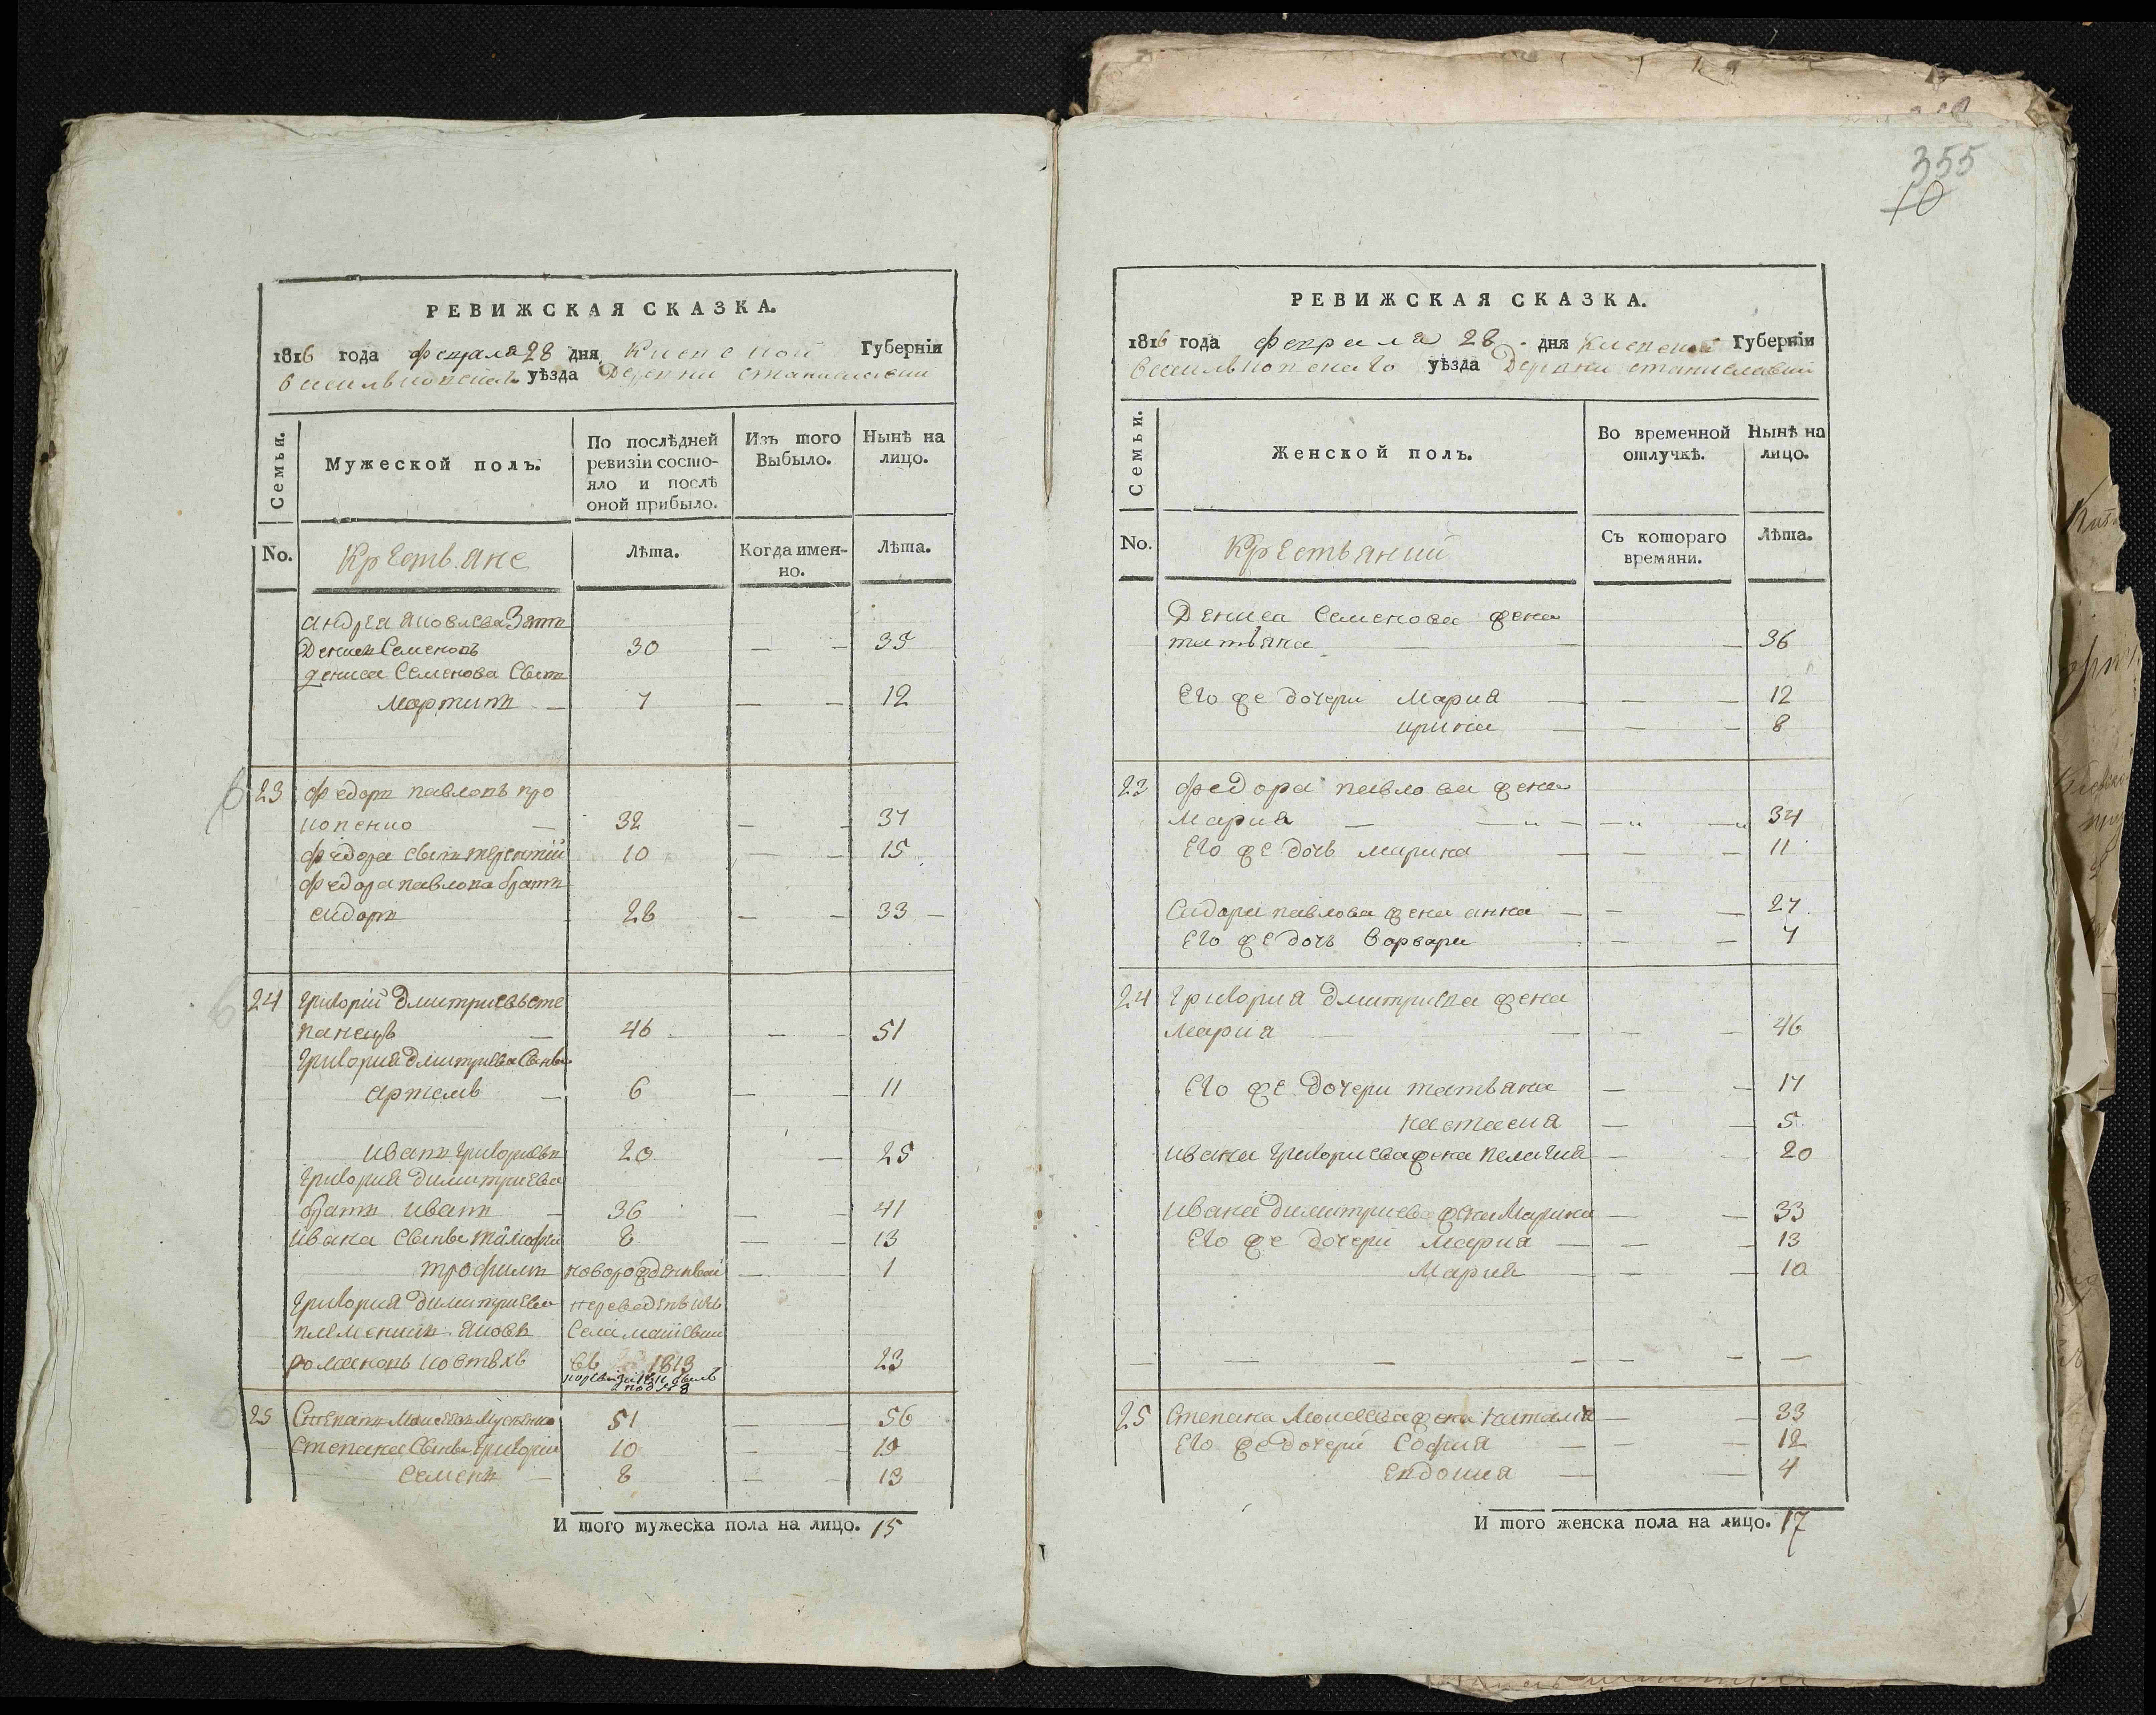 355
10
РЕВИЖСКАЯ СКАЗКА.
1816 года февраля 28 дня Киевской Губернiи
васильковскаго уѣзда Деревни станиславки
Семьи.
Мужеской полъ.
По послѣдней ревизiи состо-яло и послѣ оной прибыло.
Изъ того Выбыло.
Нынѣ на лицо.
No.
Крестьяне
Лѣта.
Когда имен-но.
Лѣта.
андрея яковлева Зять
Денисъ Семеновъ 30 — — 35
дениса Семенова Сынъ
мартинъ — 7 — — 12
23 федоръ павловъ про
копенко — 32 — — 37
федора сынъ терентiй 10 — — 15
федора павлова братъ
сидоръ 28 — — 33 —
24 григорiй дмитриевъ сте
панецъ — 46 — — 51
григория дмитриева Сынъ
артемъ — 6 — — 11
иванъ григориевъ 20 — 25
григория димитриева
братъ иванъ — 36 — — 41
ивана сынъ 8 — — 13
трофимъ новорожденный — — 1
григория димитриева переведенъ изъ
племеникъ яковъ Села
романовъ въ 1813 23
25 Степанъ Моисеевъ 51 — — 56
степана Сынъ григорiй 10 — — 15
семенъ — 8 — — 13
И того мужеска пола на лицо. 15
РЕВИЖСКАЯ СКАЗКА.
1816 года февраля 28 дня Киевской Губернiи
васильковскаго уѣзда Деревни станиславки
Семьи.
Женской полъ.
Во временной отлучкѣ.
Нынѣ на лицо.
No.
Крестьянки
Съ котораго времяни.
Лѣта.
Дениса Семенова жена
татьяна — — — 36
Его же дочери Мария — — — 12
ирина — — — 8
23 федора павлова жена
Мария — — — 34
Его же дочь марина — — — 11
Сидора павлова жена анна — — — 27
Его же дочь варвара — — — 7
24 григория дмитриева жена
мария — — — — 46
Его же дочери татьяна — — 17
настасия — — 5
ивана григориева жена пелагия — — 20
ивана димитриева жена Марина — — 33
Его же дочери Мария — — — 13
Мария — — — 10
— — — — — — —
25 степана Моисеева жена наталия — — 33
Его же дочери София — — — 12
евдокия — — 4
И того женска пола на лицо. 17